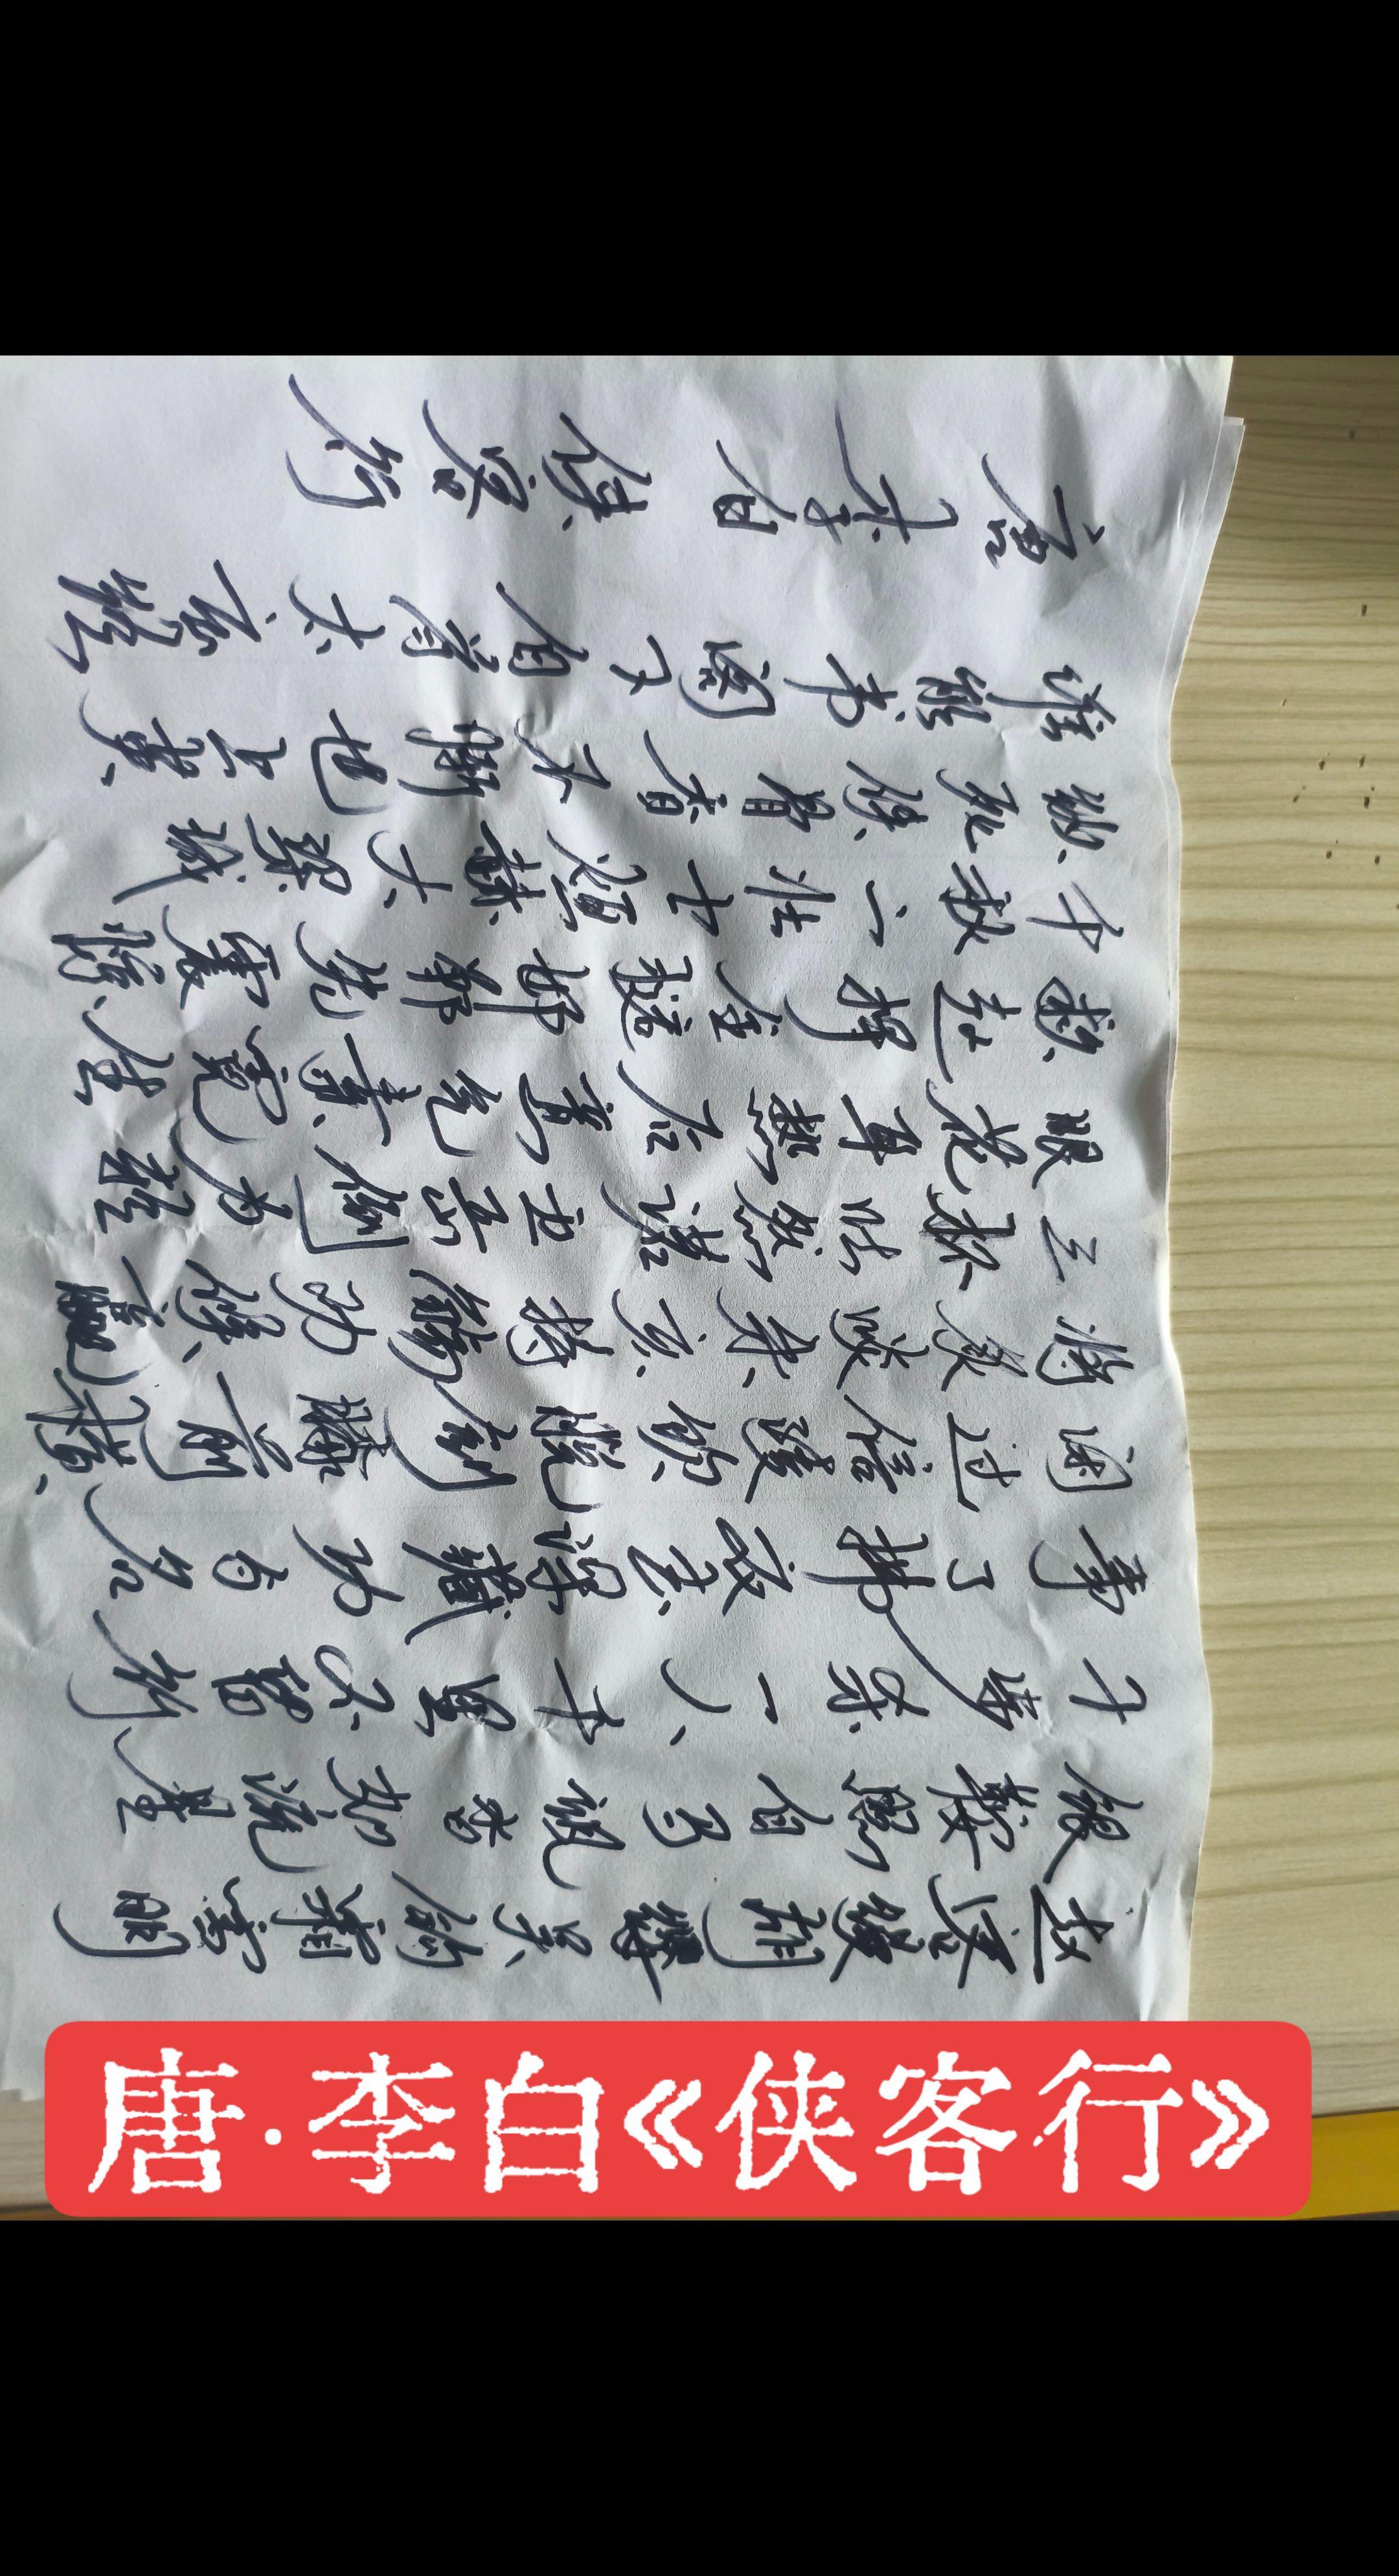 赵客缦胡缨吴钩霜雪明
银鞍照白马飒沓如流星
十步杀一人千里不留行
事了拂衣去深藏身与名
闲过信陵饮脱剑膝前横
将炙啖朱亥持觞劝侯嬴
三杯吐然诺五岳倒为轻
眼花耳热后意气素霓生
救赵挥金槌邯郸先震惊
千秋二壮士烜赫大梁城
纵死侠骨香不惭世上英
谁能书阁下白首太玄经
唐李白侠客行
唐·李白《侠客行》